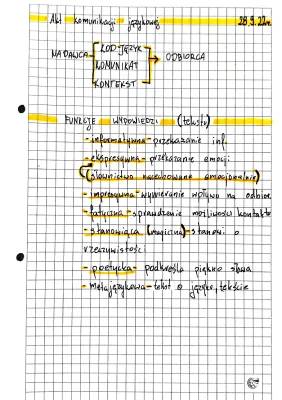 Akt komunikacji językowej 28.9.22r.
KOD-JĘZYK
NADAWCA KOMUNIKAT ODBIORCA
KONTEKST
FUNKCJE WYPOWIEDZI (tekstu)
- informatywna - przekazanie inf.
- ekspresywna - przekazanie emocji
(słownictwo nacechowane emocjonalnie)
- impresywna - wywieranie wpływu na odbior.
- fatyczna - sprawdzenie możliwości kontaktu
- stanowiąca (magiczna) - stanowi o
rzeczywistości
- poetycka - podkreśla piękno słowa
- metajęzykowa - tekst o języku, tekście